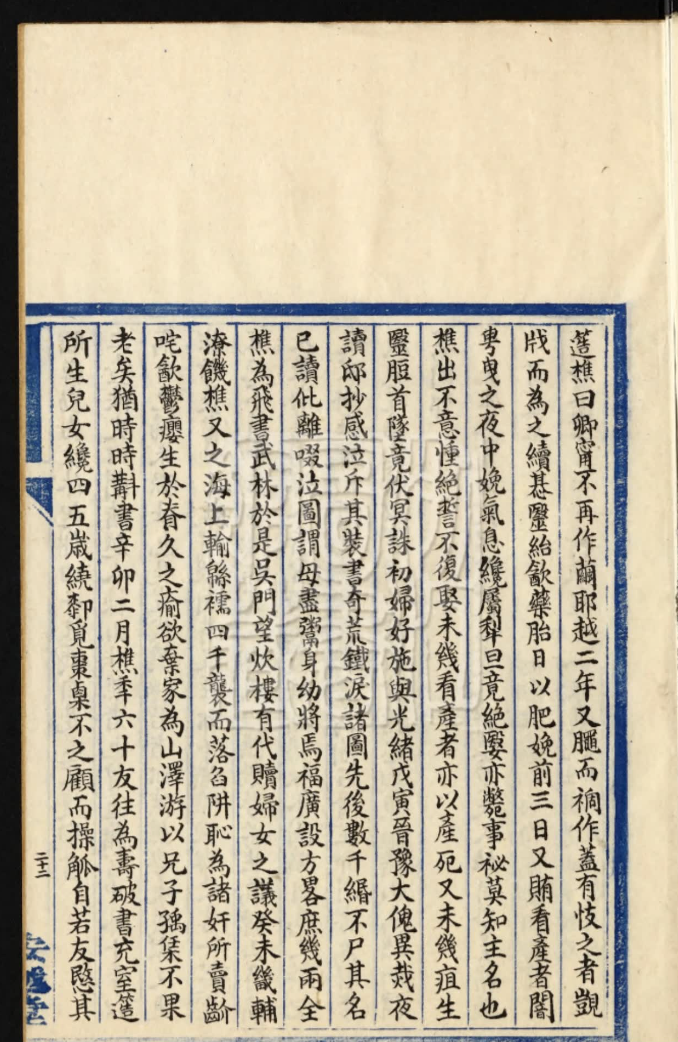 簉樵曰卿甯不再作繭耶越二年又䏰而禍作蓋有忮之者覬
戕而為之續惎毉紿歙藥胎日以肥娩前三日又賄看產者闇
甹曳之夜中娩氣息纔屬犁旦竟絕嬰亦斃事祕莫知主名也
樵出不意慟絕誓不復娶未幾看產者亦以產死又未幾疽生
毉脰首墜竟伏冥誅初婦好施與光緒戊寅晉豫大傀異烖夜
讀邸抄感泣斥其裝書奇荒鐵淚諸圖先後數千緡不尸其名
已讀仳離啜泣圖謂母盡鬻身幼將焉福廣設方畧庶幾兩全
樵為飛書武林於是吳門望炊樓有代贖婦女之議癸未畿輔
潦饑樵又之海上輸緜襦四千襲而落臽阱恥為諸奸所賣齡
咤歙鬱癭生於脊久之瘉欲棄家為山澤游以兄子孱㮡不果
老矣猶時時斠書辛卯二月樵年六十友往為壽破書充室簉
所生兒女纔四五歲繞厀覓棗㮚不之顧而操觚自若友愍其
二十二